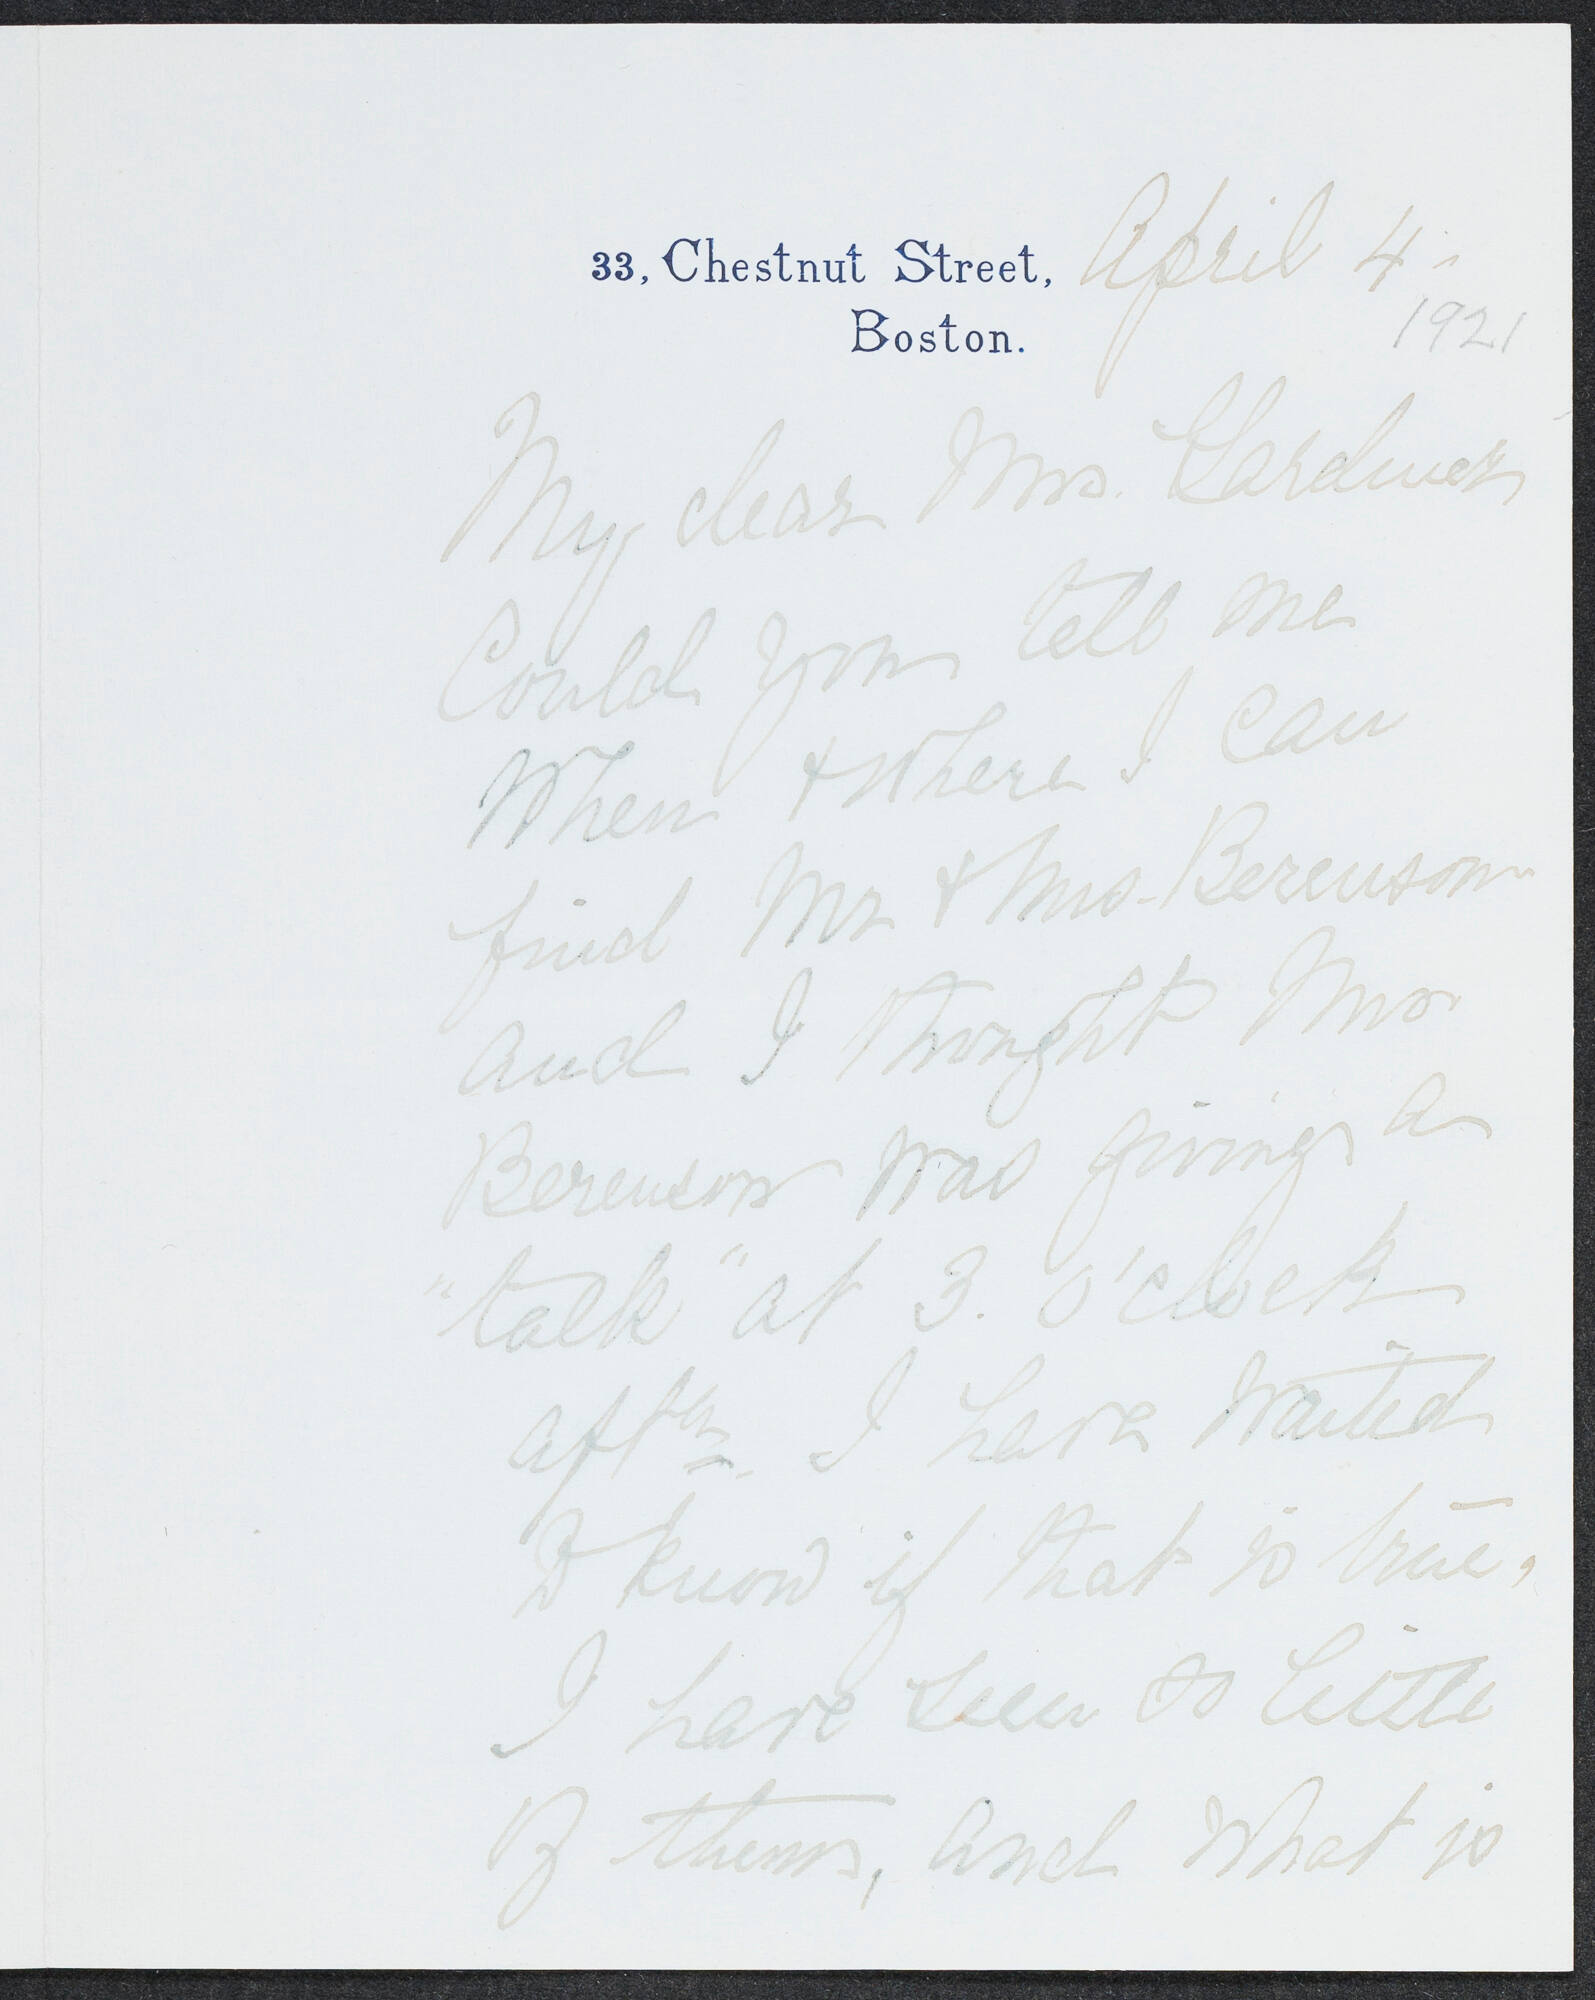 33, Chestnut Street, April 4-
Boston. 1921
My dear Mrs. Gardner
Could you tell me
when & where I can
find Mr & Mrs. Berenson
and I thought Mrs
Berenson was giving a
"talk" at 3. o'clock
aftn. I have waited
to know if that is true,
I have seen so little
of them, and what is